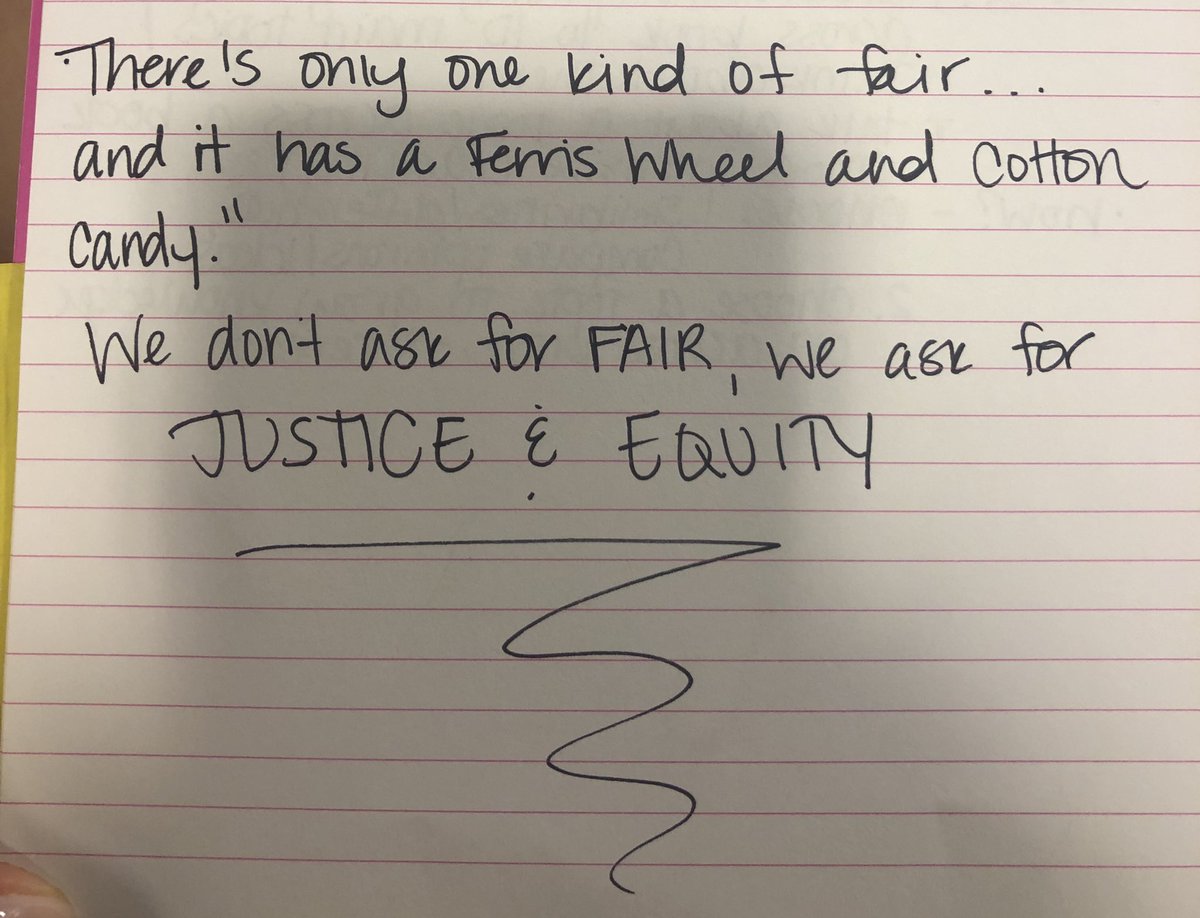 There's only one kind of fair...
and it has a Ferris Wheel and Cotton
Candy."
We don't ask for FAIR, we ask for
JUSTICE & EQUITY